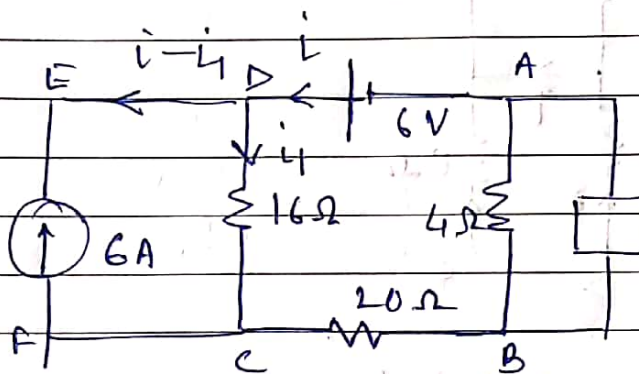 i-i1 i
E D A
6V
i1
16Ω 4Ω
6A
20Ω
F C B